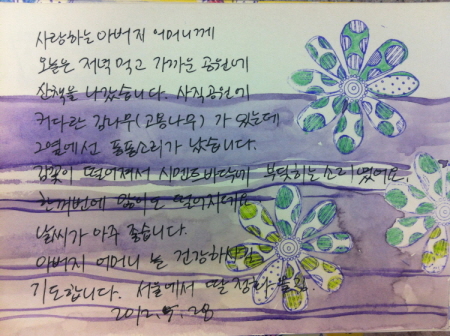 사랑하는 아버지 어머니께
오늘은 저녁 먹고 가까운 공원에
산책을 나갔습니다. 사직공원에
커다란 감나무(고목나무)가 있는데
그옆에선 톡톡소리가 났습니다.
감꽃이 떨어져서 시멘트바닥에 부딪히는 소리였어요.
한꺼번에
날씨가 아주 좋습니다.
아버지 어머니 늘 건강하시기
기도합니다. 서울에서 딸
2012. 5. 28